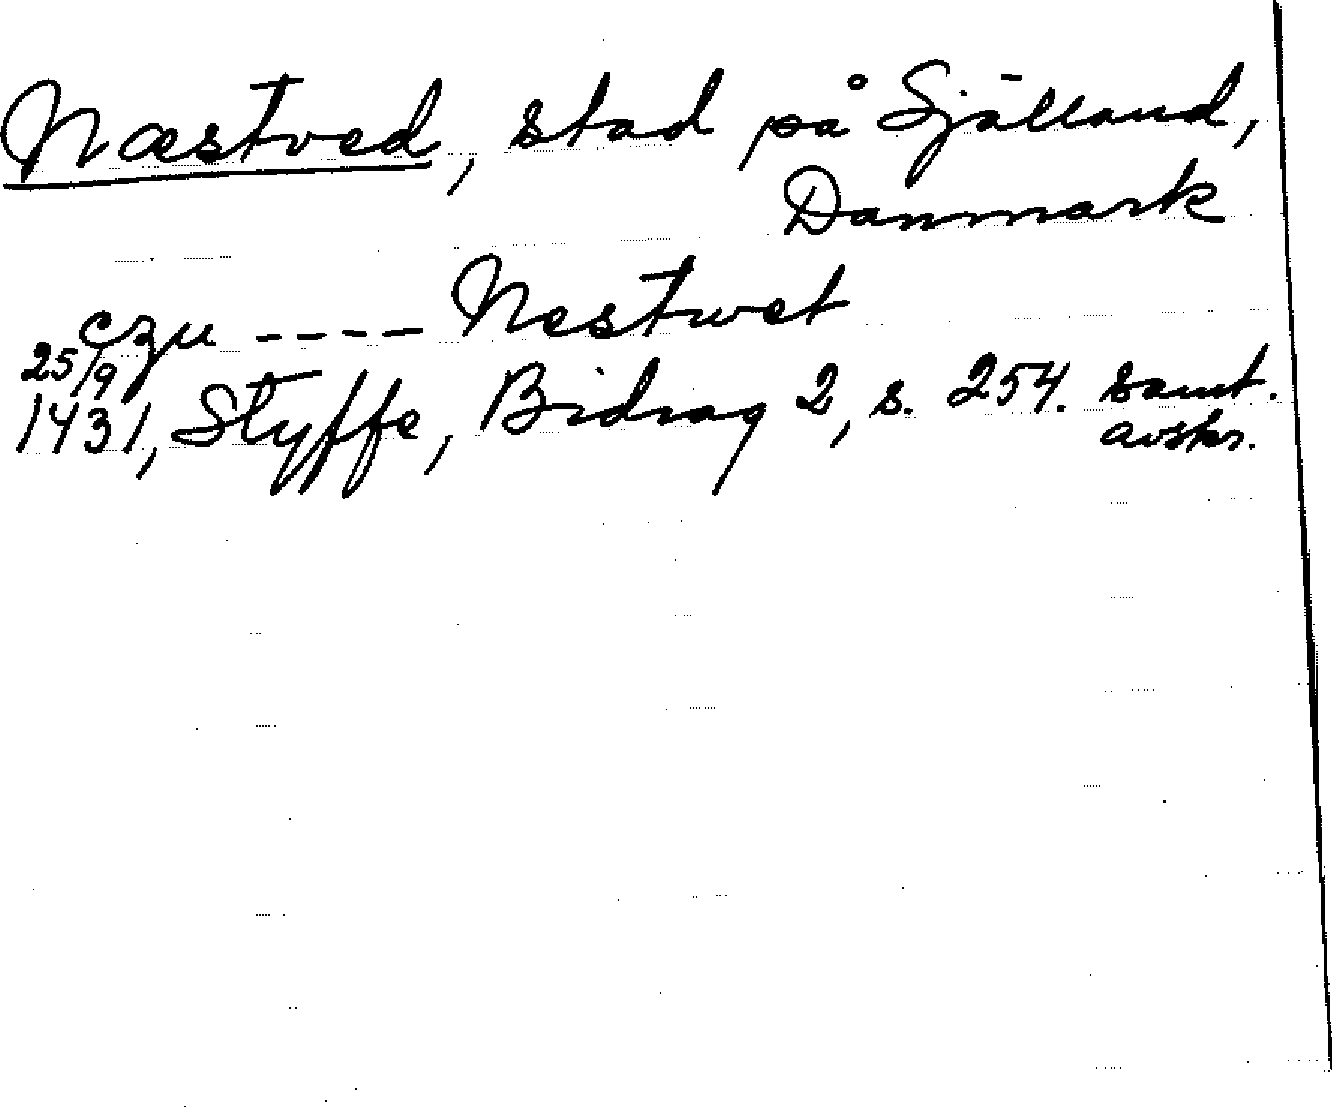 Næstved, stad på Själland,
Danmark
czu ---- Nestwet
25/9
1431, Styffe, Bidrag 2, s. 254. samt.
avskr.